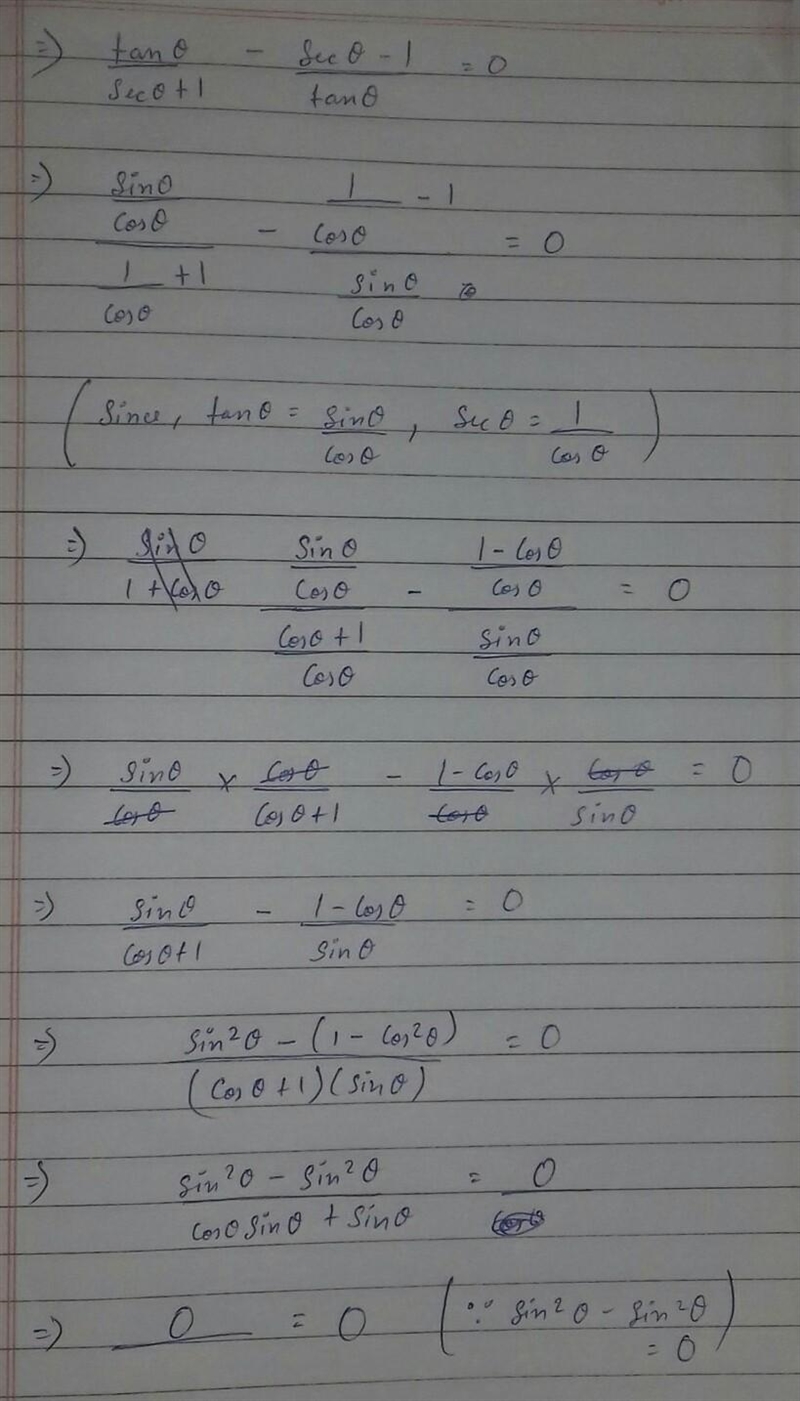 => tanθ/(secθ+1) - (secθ-1)/tanθ = 0
=> (sinθ/cosθ)/(1/cosθ + 1) - (1/cosθ - 1)/(sinθ/cosθ) = 0
(Since, tanθ = sinθ/cosθ, secθ = 1/cosθ)
=> (sinθ/cosθ)/((cosθ+1)/cosθ) - ((1-cosθ)/cosθ)/(sinθ/cosθ) = 0
=> sinθ/cosθ × cosθ/(cosθ+1) - (1-cosθ)/cosθ × cosθ/sinθ = 0
=> sinθ/(cosθ+1) - (1-cosθ)/sinθ = 0
=> (sin²θ - (1 - cos²θ))/((cosθ+1)(sinθ)) = 0
=> (sin²θ - sin²θ)/(cosθ sinθ + sinθ) = 0
=> 0 = 0 (∵ sin²θ - sin²θ = 0)